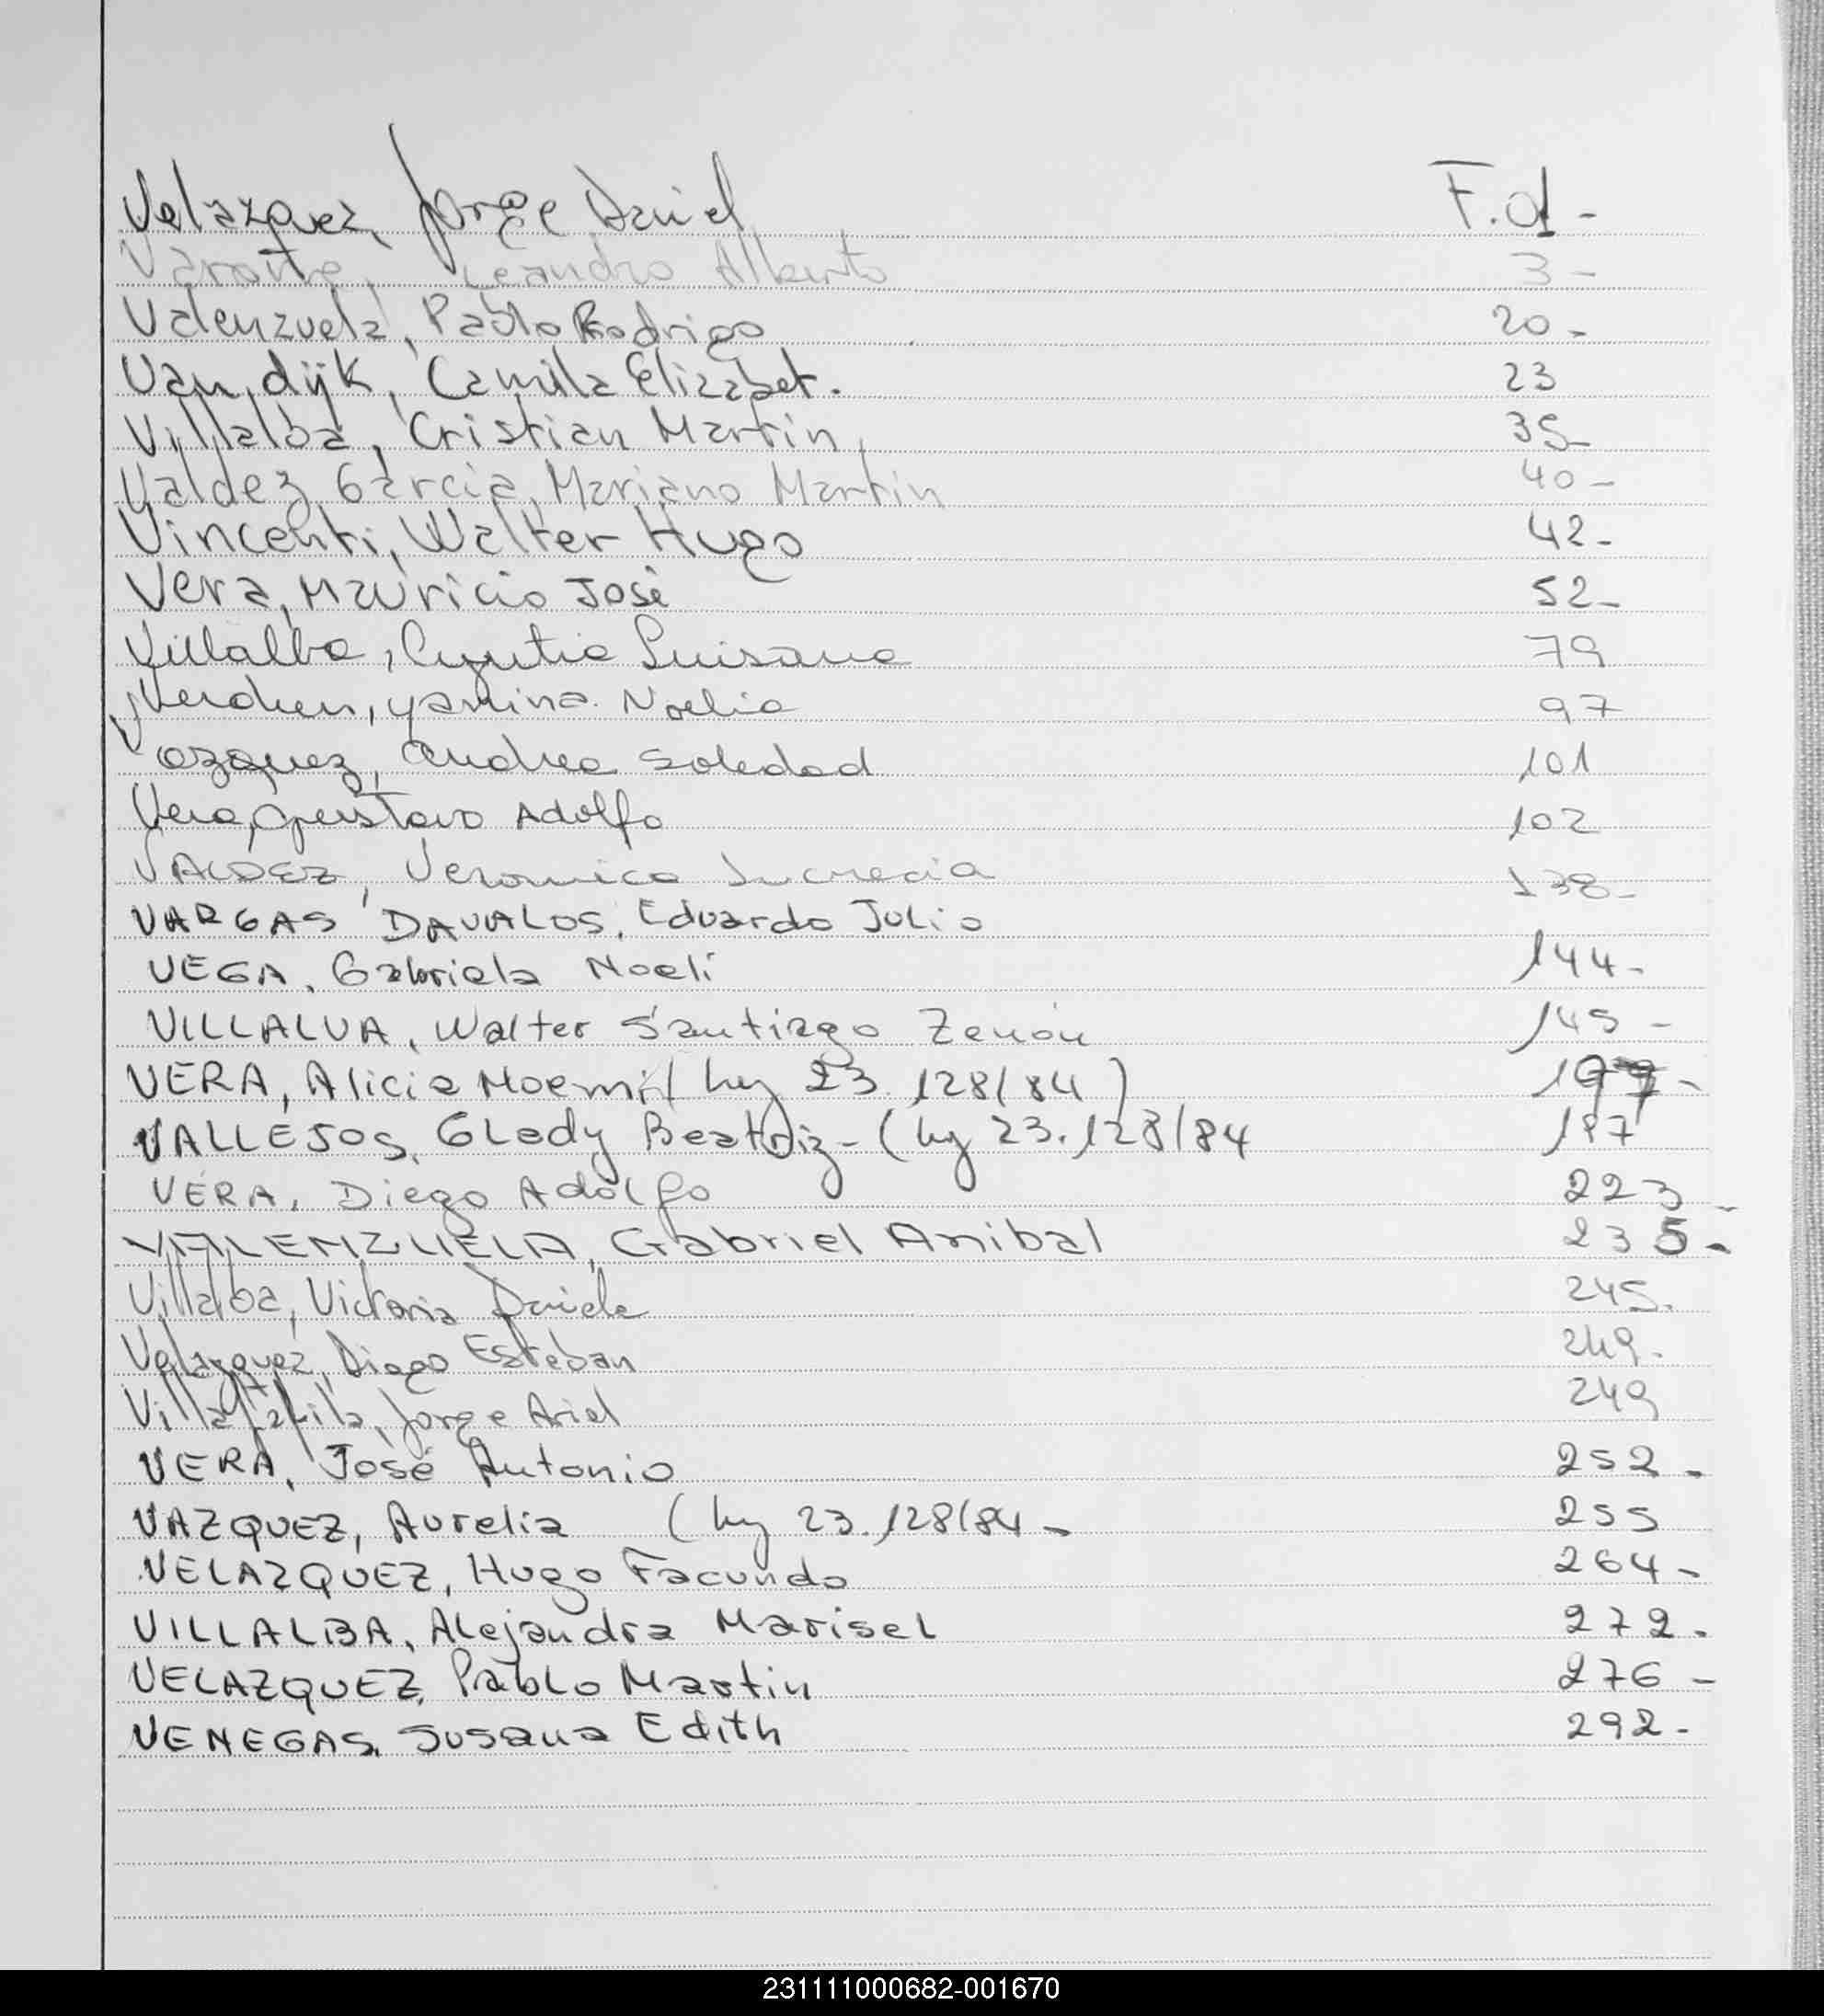 Velazquez, Jorge Daniel F.d1-
Leandro Alberto 3-
Valenzuela, Pablo Rodrigo 20-
Van dijk, Camila Elizabet. 23
Villalba, Cristian Martin 35-
Valdez Garcia, Mariano Martin 40-
Vincenti, Walter Hugo 42-
Vera, Mauricio José 52-
Villalba, Cyntia Luisana 79
yamina Noelia 97
Vazquez, Andrea Soledad 101
Vera, Gustavo Adolfo 102
VALDEZ, Veronica Lucrecia 138-
VARGAS DAVALOS, Eduardo Julio
VEGA, Gabriela Noeli 144-
VILLALVA, Walter Santiago Zenón 145-
VERA, Alicia Noemi (ley 23.128/84)
VALLEJOS, Glady Beatriz-(ley 23.128/84 187
VERA, Diego Adolfo 223-
VALENZUELA, Gabriel Anibal 235-
Villalba, Victoria Daniela 245.
Velazquez, Diego Esteban 249.
Jorge Ariel 249
VERA, José Antonio 252-
VAZQUEZ, Aurelia (ley 23.128/84- 255
VELAZQUEZ, Hugo Facundo 264-
VILLALBA, Alejandra Marisel 272.
VELAZQUEZ, Pablo Martin 276-
VENEGAS, Susana Edith 292-
231111000682-001670